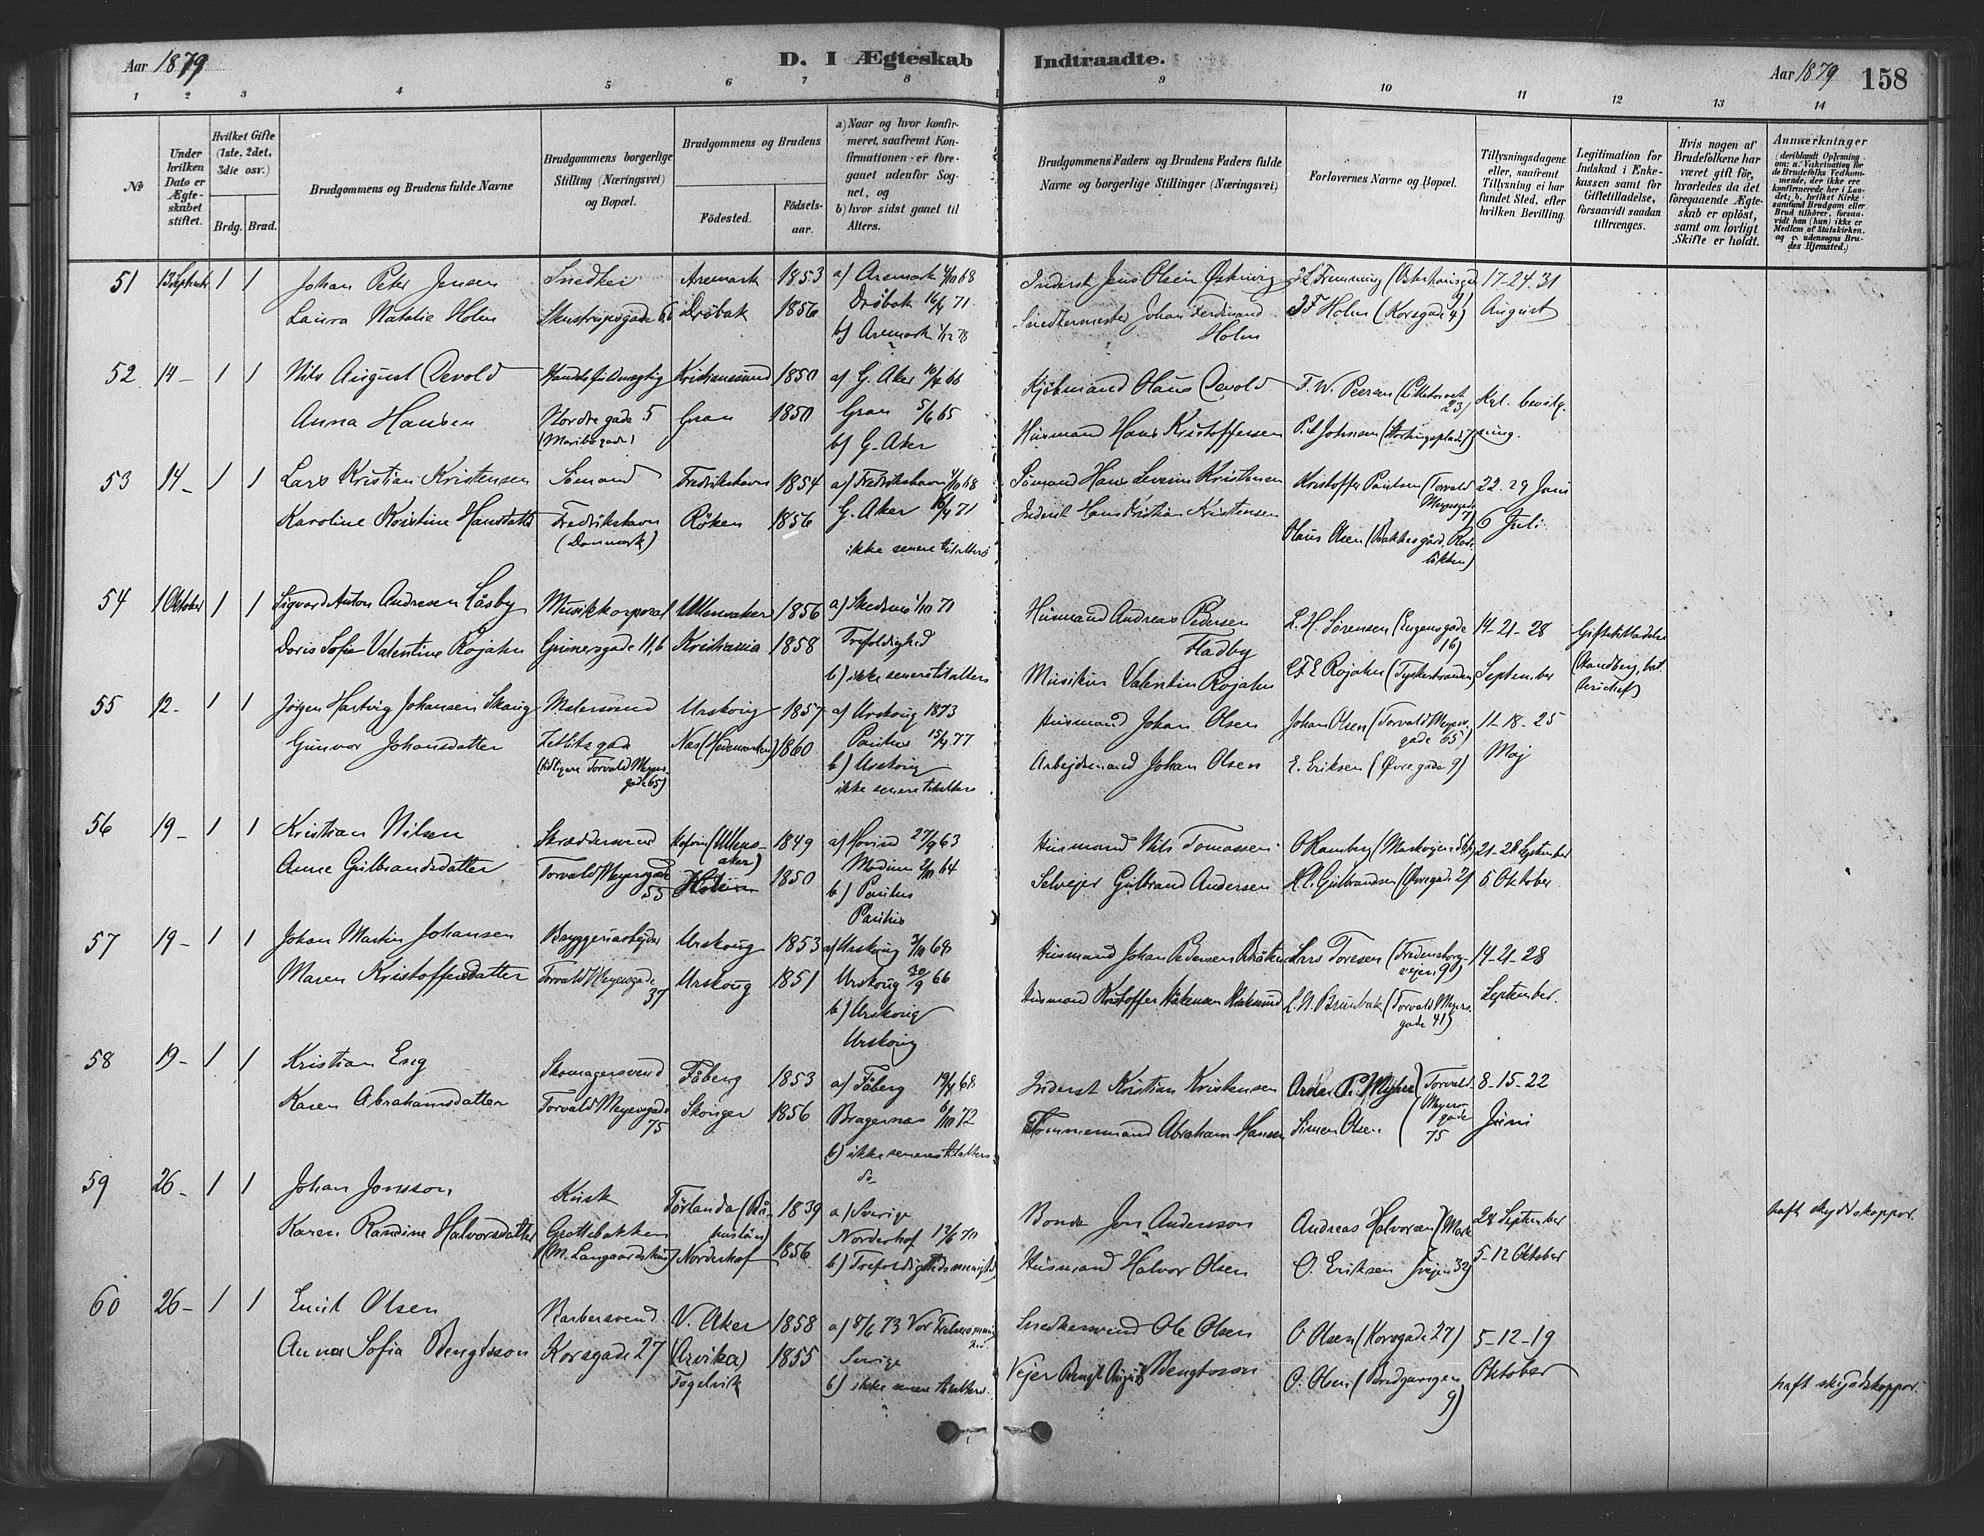 Aar 1879
D. I Ægteskab Indtraadte.
Aar 1879 158
1 2 3 4 5 6 7 8 9 10 11 12 13 14
No
Under hvilken Dato er Ægteskabet stiftet.
Hvilket Gifte (1ste, 2det, 3die osv.)
Brdg. Brud.
Brudgommens og Brudens fulde Navne
Brudgommens borgerlige Stilling (Næringsvei) og Bopæl.
Brudgommens og Brudens
Födested.
Födselsaar.
a) Naar og hvor konfirmeret, saafremt Konfirmationen er foregaaet udenfor Sognet, og
b) hvor sidst gaaet til Alters.
Brudgommens Faders og Brudens Faders fulde Navne og borgerlige Stillinger (Næringsvei)
Forlovernes Navne og Bopæl.
Tillysningsdagene eller, saafremt Tillysning ei har fundet Sted, efter hvilken Bevilling.
Legitimation for Indskud i Enkekassen samt for Giftetilladelse, forsaavidt saadan tiltrænges.
Hvis nogen af Brudefolkene har været gift før, hvorledes da det foregaaende Ægteskab er opløst, samt om lovligt Skifte er holdt.
Anmærkninger
51 13 Septembr 1 1 Johan Peter Jensen Snedker Aremark 1853 a) Aremark 4/10 68 Inderst Jens Olsen 17-24-31
Laura Natalie Holm Skustrupsgade 6 Drøbak 1856 Drøbak 16/4 71 Snedkermester Johan Ferdinand Holm J F Holm (Korsgade 4) August
b) Aremark 1/12 78
52 14 - 1 1 Nils August Devold Handelsfuldmægtig Kristianssund 1850 a) G. Aker Kjøbmand Olaus Devold Kgl. bevilgning.
Anna Hansen Nordregade 5 (Maribogade) Gran 1850 Gran 5/6 65 Husmand Hans Kristoffersen P.A Johnsen (Stortingsplads 7)
b) G. Aker
53 14 - 1 1 Lars Kristian Kristensen Sømand Fredrikshavn 1854 a) Fredrikshavn 4/10 68 Sømand Hans Severin Kristensen Kristoffer Paulsen (Torvald Meyersgade 7) 22. 29 Juni
Karoline Kristine Hansdatter Fredrikshavn (Danmark) Røken 1856 G. Aker 16/4 71 Inderst Hans Kristian Kristensen Olaus Olsen 6 Juli
ikke senere tilalters
54 1 Oktober 1 1 Sigvard Anton Andresen Låsby Musikkorporal Ullensaker 1856 a) Skedsmo 1/10 71 Husmand Andreas Pedersen Fladby L. H. Sørensen (Eugensgade 16) 14-21-28
Doris Sofie Valentine Rojahn Grünersgade 11,6 Kristiania 1858 Trefoldighed Musikus Valentin Rojahn C F E Rojahn September Giftetilladelse
b) ikke senere tilalters
55 12 - 1 1 Jørgen Hartvig Johansen Skaug Malersvend Urskoug 1857 a) Urskoug 1873 Husmand Johan Olsen Johan Olsen (Torvald Meyersgade 65) 11-18-25
Gunvor Johansdatter Zetlitzgad (tidligere Torvald Meyersgade 65) Nas (Hedemarken) 1860 Paulus 15/4 77 Arbejdsmand Johan Olsen E. Eriksen (Øvregade 9) Maj
b) Urskoug
ikke senere tilalters
56 19 - 1 1 Kristian Nilsen Skræddersvend Hofvin (Ullensaker) 1849 a) Hovind 27/9 63 Husmand Nils Tomassen 21-28 September
Anne Gulbrandsdatter Torvald Meyersgade 55 1850 Modum 2/10 64 Selvejer Gulbrand Andersen H. C. Gulbrandsen (Øvregade 2) 5 Oktober
b) Paulus
Paulus
57 19 - 1 1 Johan Martin Johansen Bryggeriarbejder Urskoug 1853 a) Urskoug 3/10 68 Husmand Johan Pedersen Lars Toresen (Fredensborgvejen 9) 14-21-28
Maren Kristoffersdatter Torvald Meyersgade 37 Urskoug 1851 Urskoug 30/9 66 Husmand Kristoffer L. N. Brunbak (Torvald Meyersgade 41) September.
b) Urskoug
Urskoug
58 19 - 1 1 Kristian Eng Skomagersvend Fåberg 1853 a) Fåberg 19/7 68 Inderst Kristian Kristensen (Torvald Meyersgade 75) 8-15-22
Karen Abrahamsdatter Torvald Meyersgade 75 Skouger 1856 Bragernæs 6/10 72 Tømmermand Abraham Hansen Simen Olsen Juni
b) ikke senere tilalters
59 26 - 1 1 Johan Jonsson Kusk Törlanda (Båhuslän) 1839 a) Sverige Bonde Jon Andersson Andreas Halvorsen 28 September haft skydskoppor.
Karen Randine Halvorsdatter Grottebakken (M. Langaards hus) Norderhof 1856 Norderhof 12/6 70 Husmand Halvor Olsen O. Eriksen 5-12 Oktober
b) Trefoldighedsmenighed
60 26 - 1 1 Emil Olsen Barbersvend V. Aker 1858 a) 8/6 73 Vor Frelsers menighed Snedkersvend Ole Olsen O Olsen (Korsgade 27) 5-12-19
Anna Sofia Bengtsson Korsgade 27 (Arvika) Fogelvik 1855 Sverige Vejer Bengt August Bengtsson O. Olsen (Bredgangen 9) Oktober haft skydskoppor.
b) ikke senere tilalters.